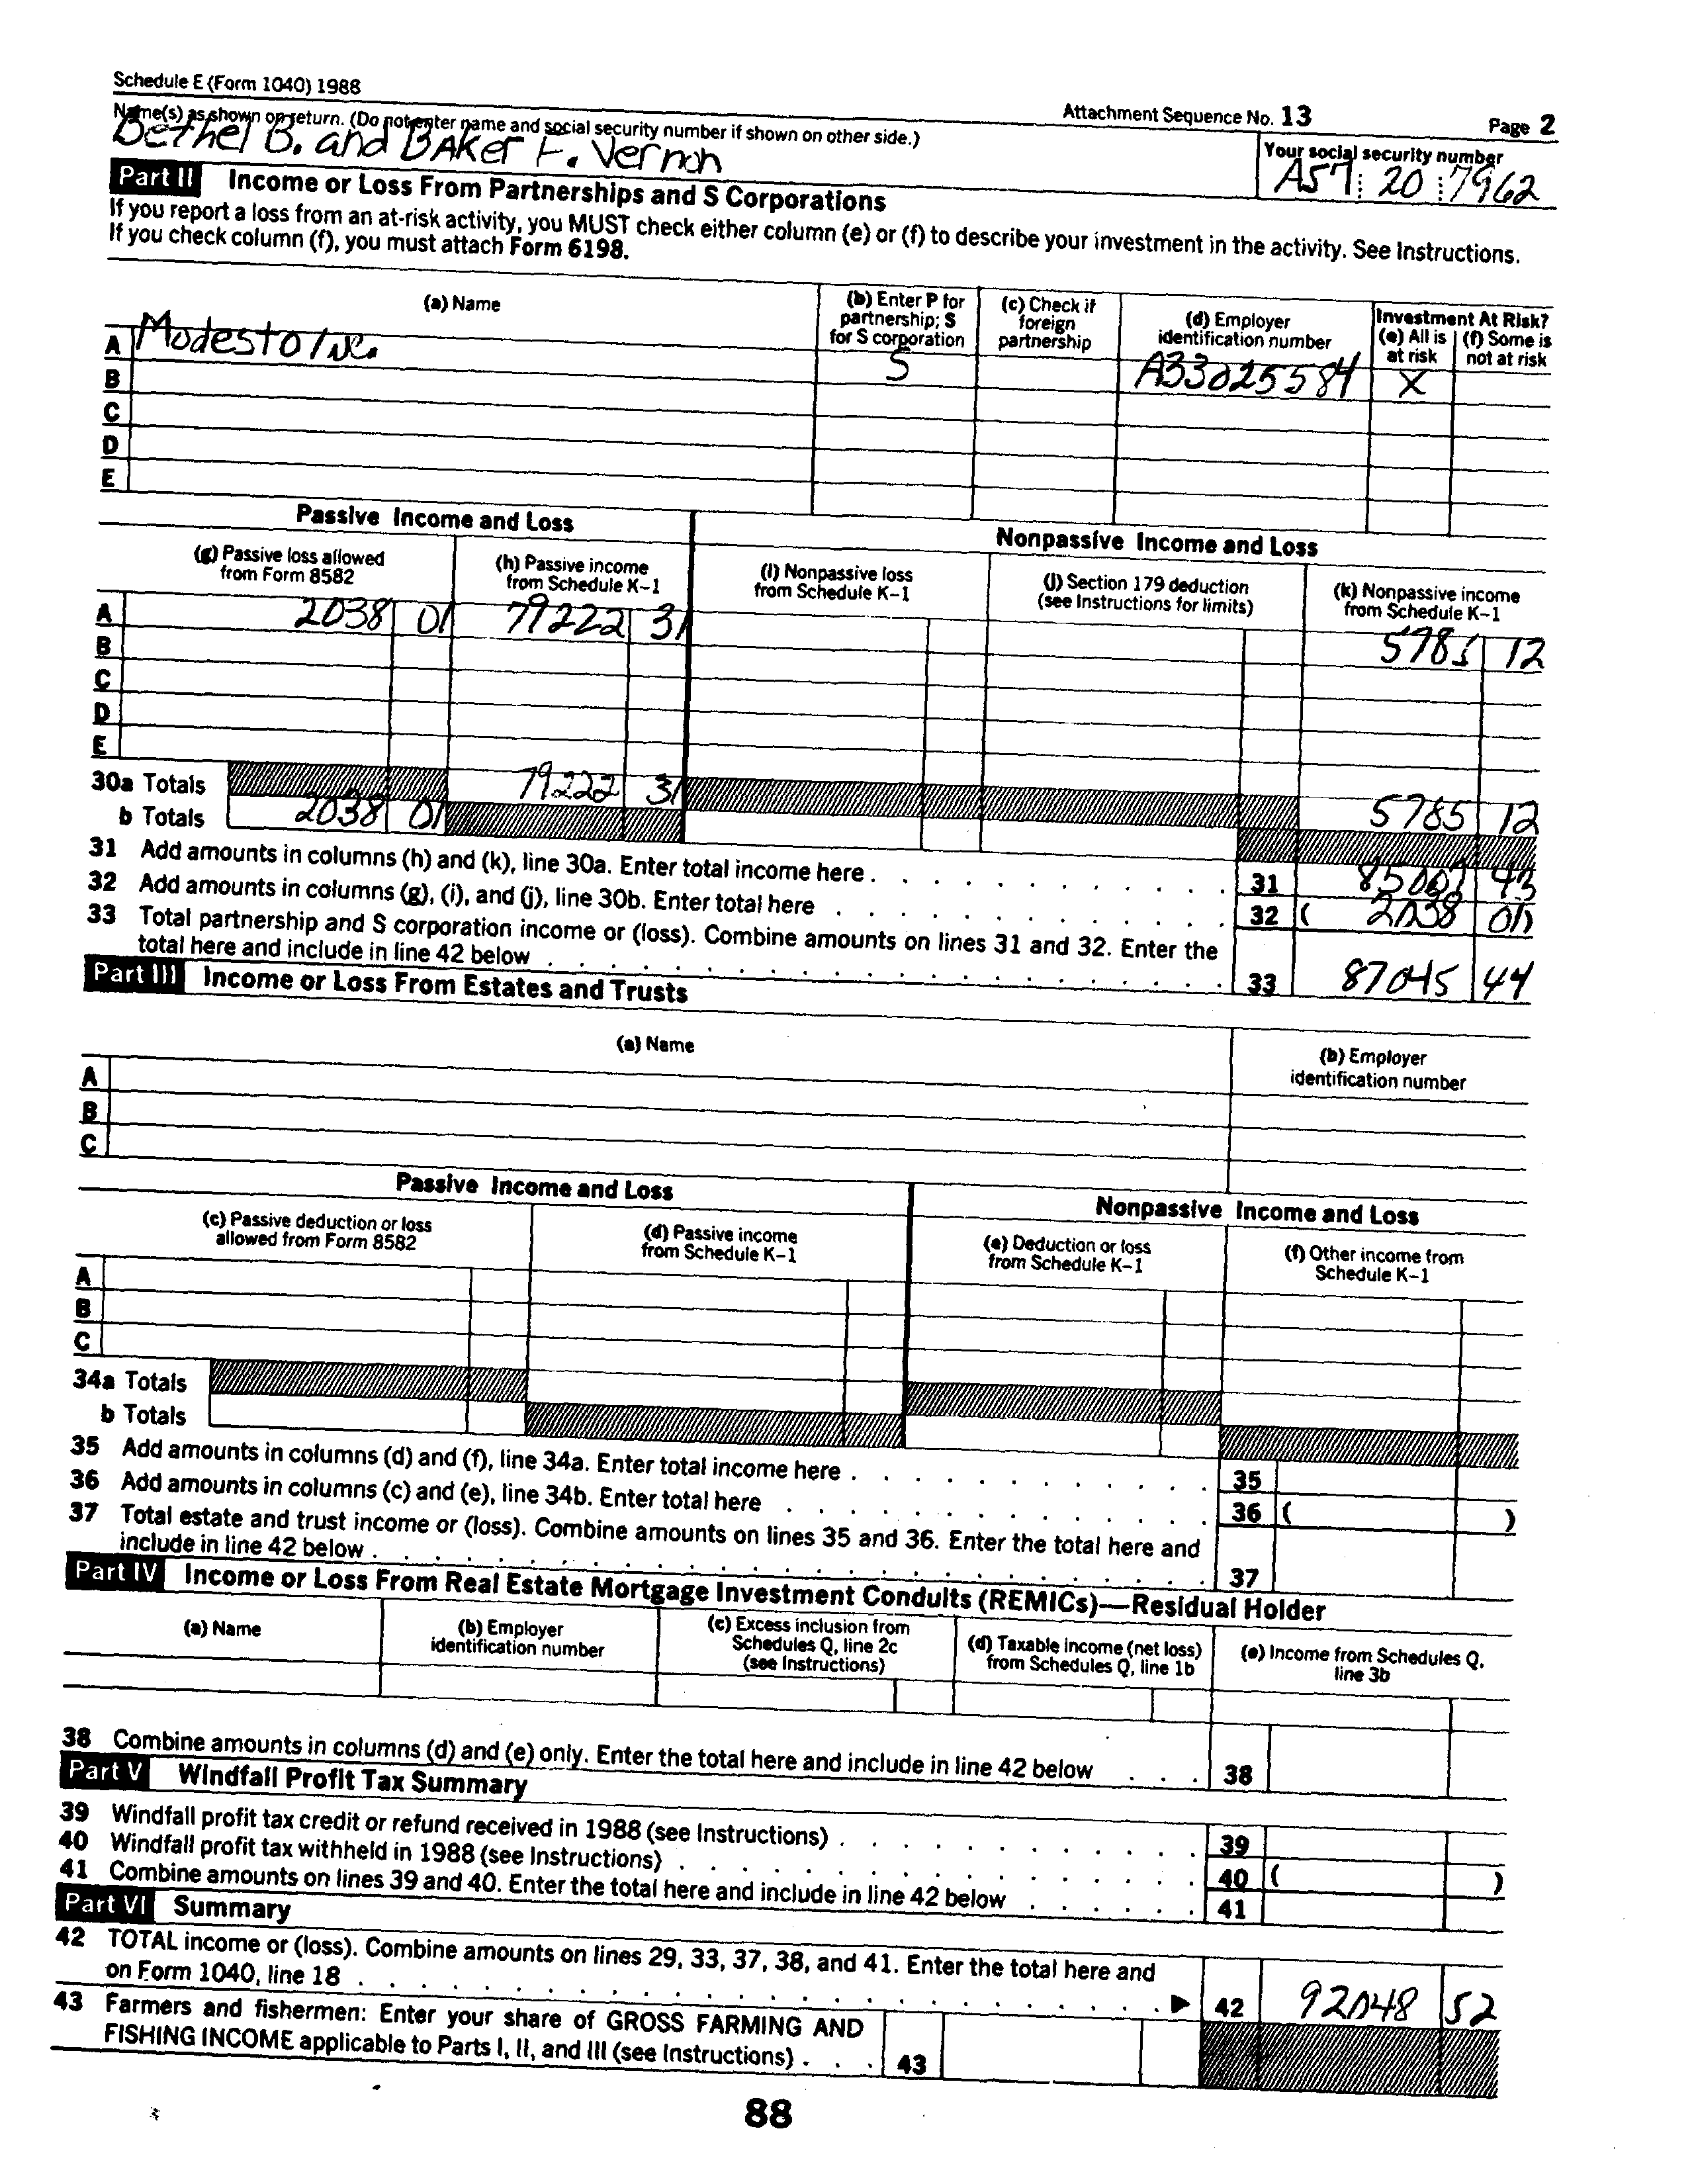 Schedule E (Form 1040) 1988
Attachment Sequence No. 13
Page 2
Name(s) as shown on return. (Do not enter name and social security number if shown on other side.)
Bethel B. and BAKER F. Vernon
Your social security number
A57 20 7962
Part II Income or Loss From Partnerships and S Corporations
If you report a loss from an at-risk activity, you MUST check either column (e) or (f) to describe your investment in the activity. See Instructions.
If you check column (f), you must attach Form 6198.
(a) Name
(b) Enter P for partnership; S for S corporation
(c) Check if foreign partnership
(d) Employer identification number
Investment At Risk?
(e) All is at risk
(f) Some is not at risk
A Modesto Inc. S A33025584 X
B
C
D
E
Passive Income and Loss
Nonpassive Income and Loss
(g) Passive loss allowed from Form 8582
(h) Passive income from Schedule K-1
(i) Nonpassive loss from Schedule K-1
(j) Section 179 deduction (see Instructions for limits)
(k) Nonpassive income from Schedule K-1
A 2038 01 79222 31 5785 12
B
C
D
E
30a Totals 79222 31 5785 12
b Totals 2038 01
31 Add amounts in columns (h) and (k), line 30a. Enter total income here . 31 85007 43
32 Add amounts in columns (g), (i), and (j), line 30b. Enter total here 32 ( 2038 01)
33 Total partnership and S corporation income or (loss). Combine amounts on lines 31 and 32. Enter the
total here and include in line 42 below 33 87045 44
Part III Income or Loss From Estates and Trusts
(a) Name
(b) Employer identification number
A
B
C
Passive Income and Loss
Nonpassive Income and Loss
(c) Passive deduction or loss allowed from Form 8582
(d) Passive income from Schedule K-1
(e) Deduction or loss from Schedule K-1
(f) Other income from Schedule K-1
A
B
C
34a Totals
b Totals
35 Add amounts in columns (d) and (f), line 34a. Enter total income here . 35
36 Add amounts in columns (c) and (e), line 34b. Enter total here 36 ( )
37 Total estate and trust income or (loss). Combine amounts on lines 35 and 36. Enter the total here and
include in line 42 below . 37
Part IV Income or Loss From Real Estate Mortgage Investment Conduits (REMICs)—Residual Holder
(a) Name
(b) Employer identification number
(c) Excess inclusion from Schedules Q, line 2c (see Instructions)
(d) Taxable income (net loss) from Schedules Q, line 1b
(e) Income from Schedules Q, line 3b
38 Combine amounts in columns (d) and (e) only. Enter the total here and include in line 42 below 38
Part V Windfall Profit Tax Summary
39 Windfall profit tax credit or refund received in 1988 (see Instructions) . 39
40 Windfall profit tax withheld in 1988 (see Instructions) . 40 ( )
41 Combine amounts on lines 39 and 40. Enter the total here and include in line 42 below 41
Part VI Summary
42 TOTAL income or (loss). Combine amounts on lines 29, 33, 37, 38, and 41. Enter the total here and
on Form 1040, line 18 ▶ 42 92048 52
43 Farmers and fishermen: Enter your share of GROSS FARMING AND
FISHING INCOME applicable to Parts I, II, and III (see Instructions) . 43
88